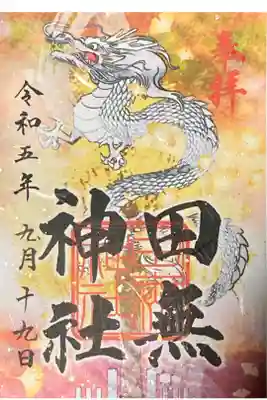 奉拝
田無
神社
令和五年九月十九日